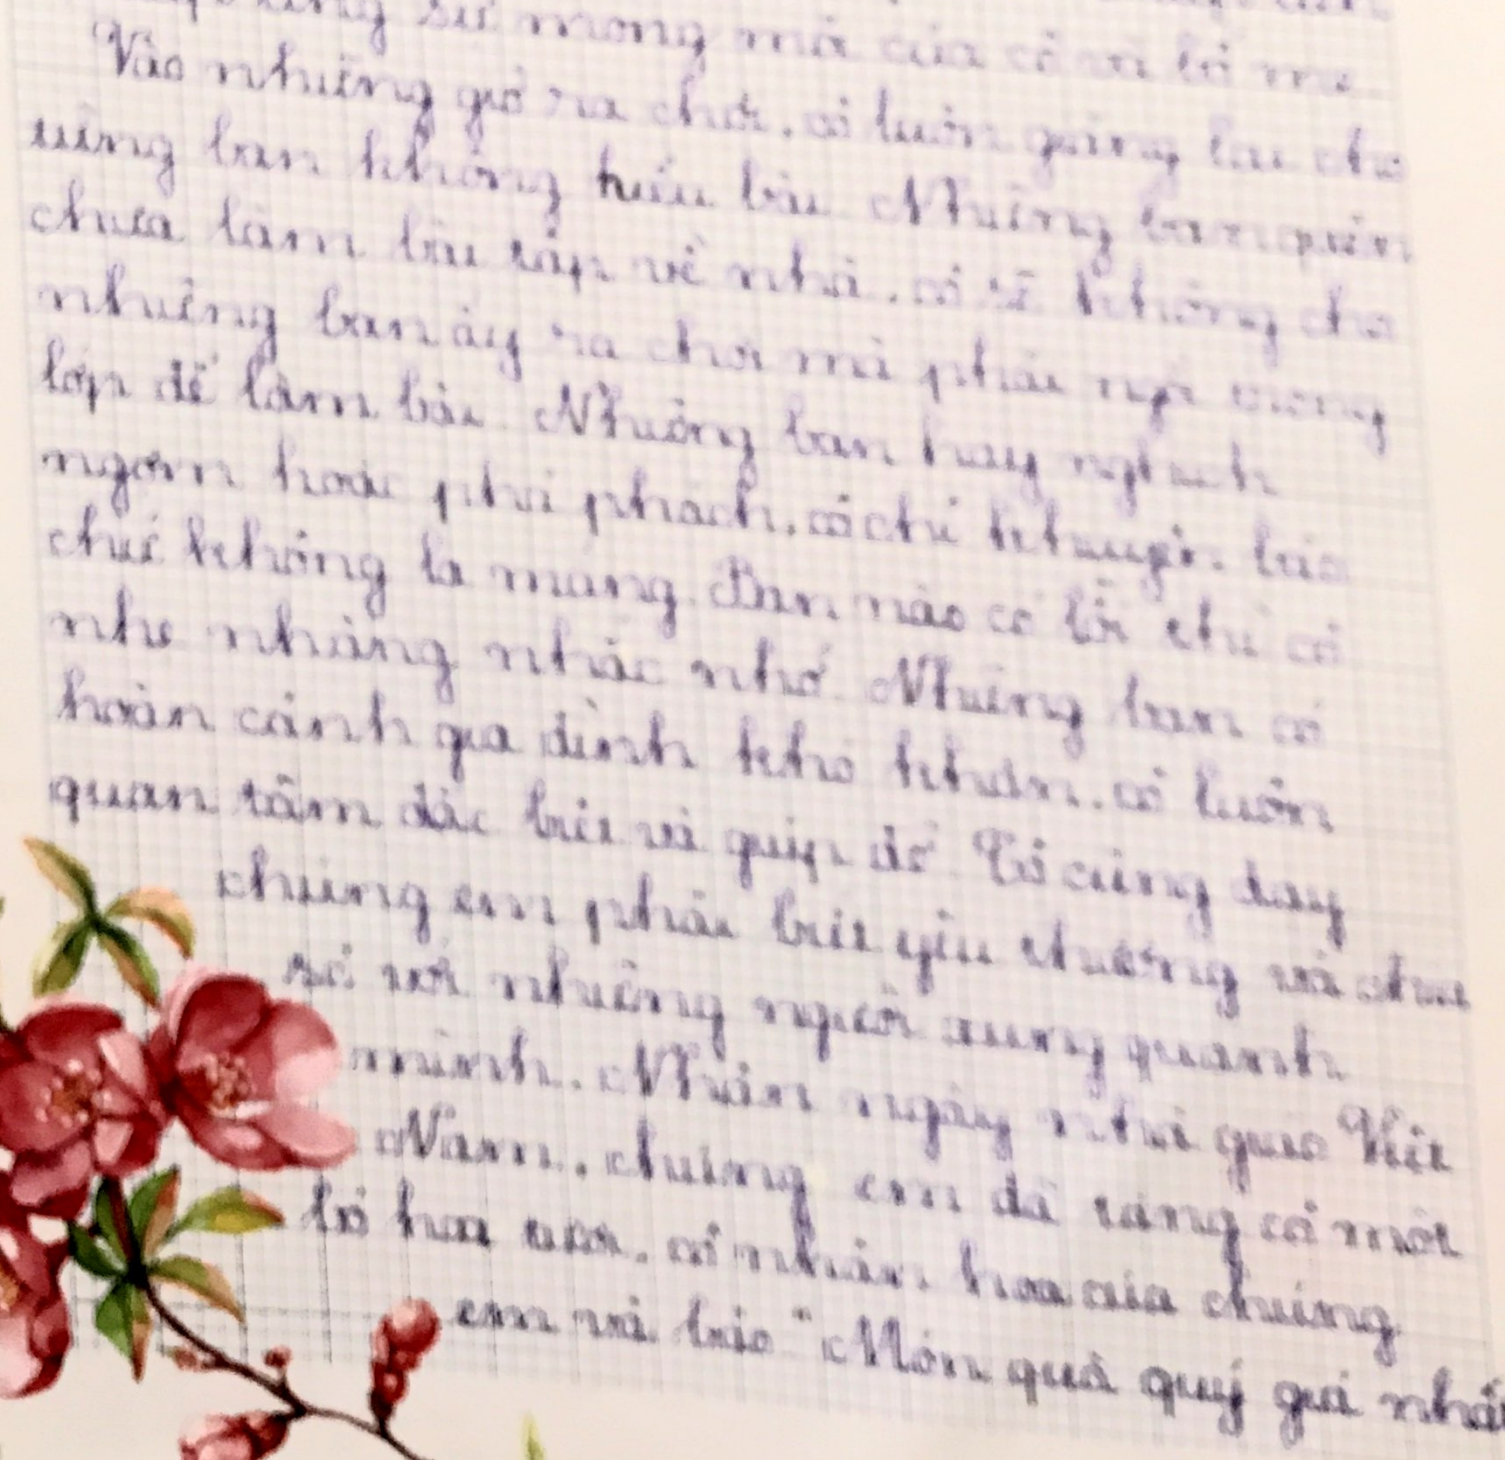 sự mong mỏi của cô và bố mẹ
Vào những giờ ra chơi, cô luôn giảng lại cho
từng bạn không hiểu bài. Những bạn quên
chưa làm bài tập về nhà, cô sẽ không cho
những bạn ấy ra chơi mà phải ngồi trong
lớp để làm bài. Những bạn hay nghịch
ngợm hoặc phá phách, cô chỉ khuyên bảo
chứ không la mắng. Bạn nào có lỗi thì cô
nhẹ nhàng nhắc nhở. Những bạn có
hoàn cảnh gia đình khó khăn, cô luôn
quan tâm đặc biệt và giúp đỡ. Cô cũng dạy
chúng em phải biết yêu thương và chia
sẻ với những người xung quanh
mình. Nhân ngày nhà giáo Việt
Nam, chúng em đã tặng cô một
bó hoa tươi, cô nhận hoa của chúng
em và bảo "Món quà quý giá nhất